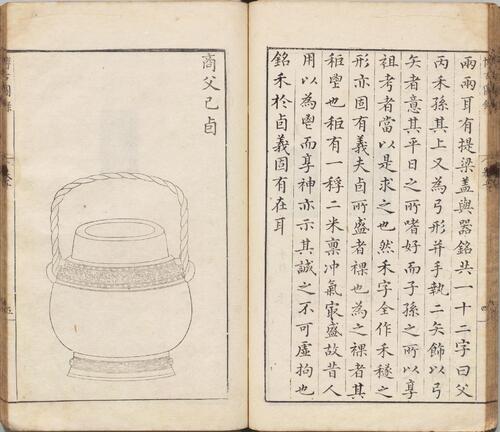 兩兩耳有提梁盖與器銘共一十二字曰父
丙禾孫其上又為弓形并手執二矢飾以弓
矢者意其平日之所嗜好而子孫之所以享
祖考者當以是求之也然禾字全作禾穟之
形亦固有義夫卣所盛者祼也為之祼者其
秬鬯也秬有一稃二米禀冲氣㝡盛故昔人
用以為鬯而享神亦示其誠之不可虛拘也
銘禾於卣義固有在耳
商父己卣